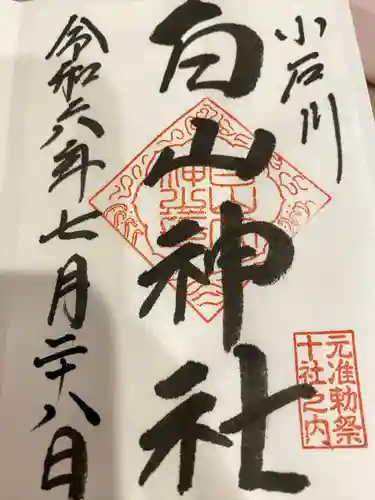 小石川
白山神社
令和六年七月二十八日
元准勅祭
十社之内